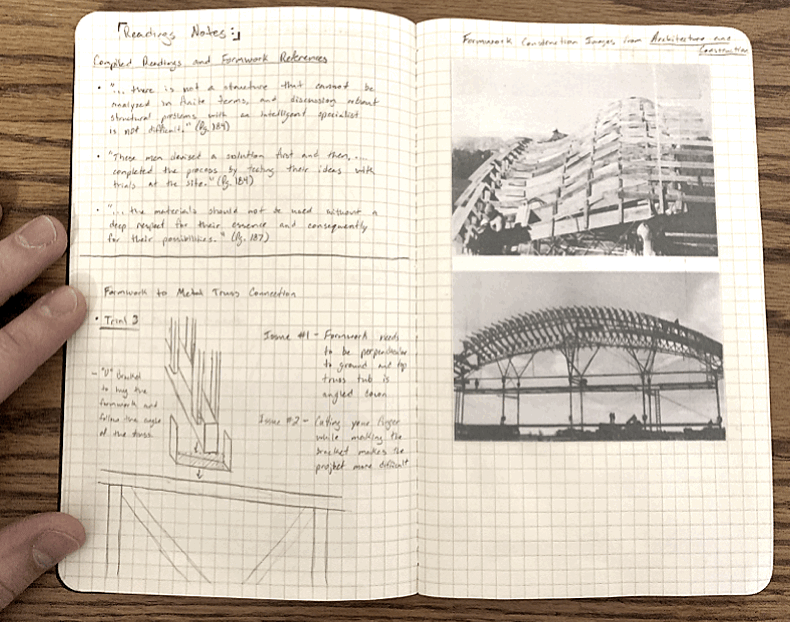 Readings Notes:
Compiled Readings and Formwork References
• "... there is not a structure that cannot be
analyzed in finite terms, and discussing robust
structural problems with an intelligent specialist
is not difficult." (Pg. 184)
• "These men devised a solution first and then, ...
completed the process by testing their ideas with
trials at the site." (Pg. 184)
• "... the materials should not be used without a
deep respect for their essence and consequently
for their possibilities." (Pg. 187)
Formwork to Metal Truss Connection
• Trial 3
- "U" Bracket
to hug the
formwork and
follow the angle
of the truss
Issue #1 - Formwork needs
to be perpendicular
to ground and top
truss tub is
angled down
Issue #2 - Cutting your finger
while making the
bracket makes the
project more difficult
Formwork Construction Images from Architecture and
Construction